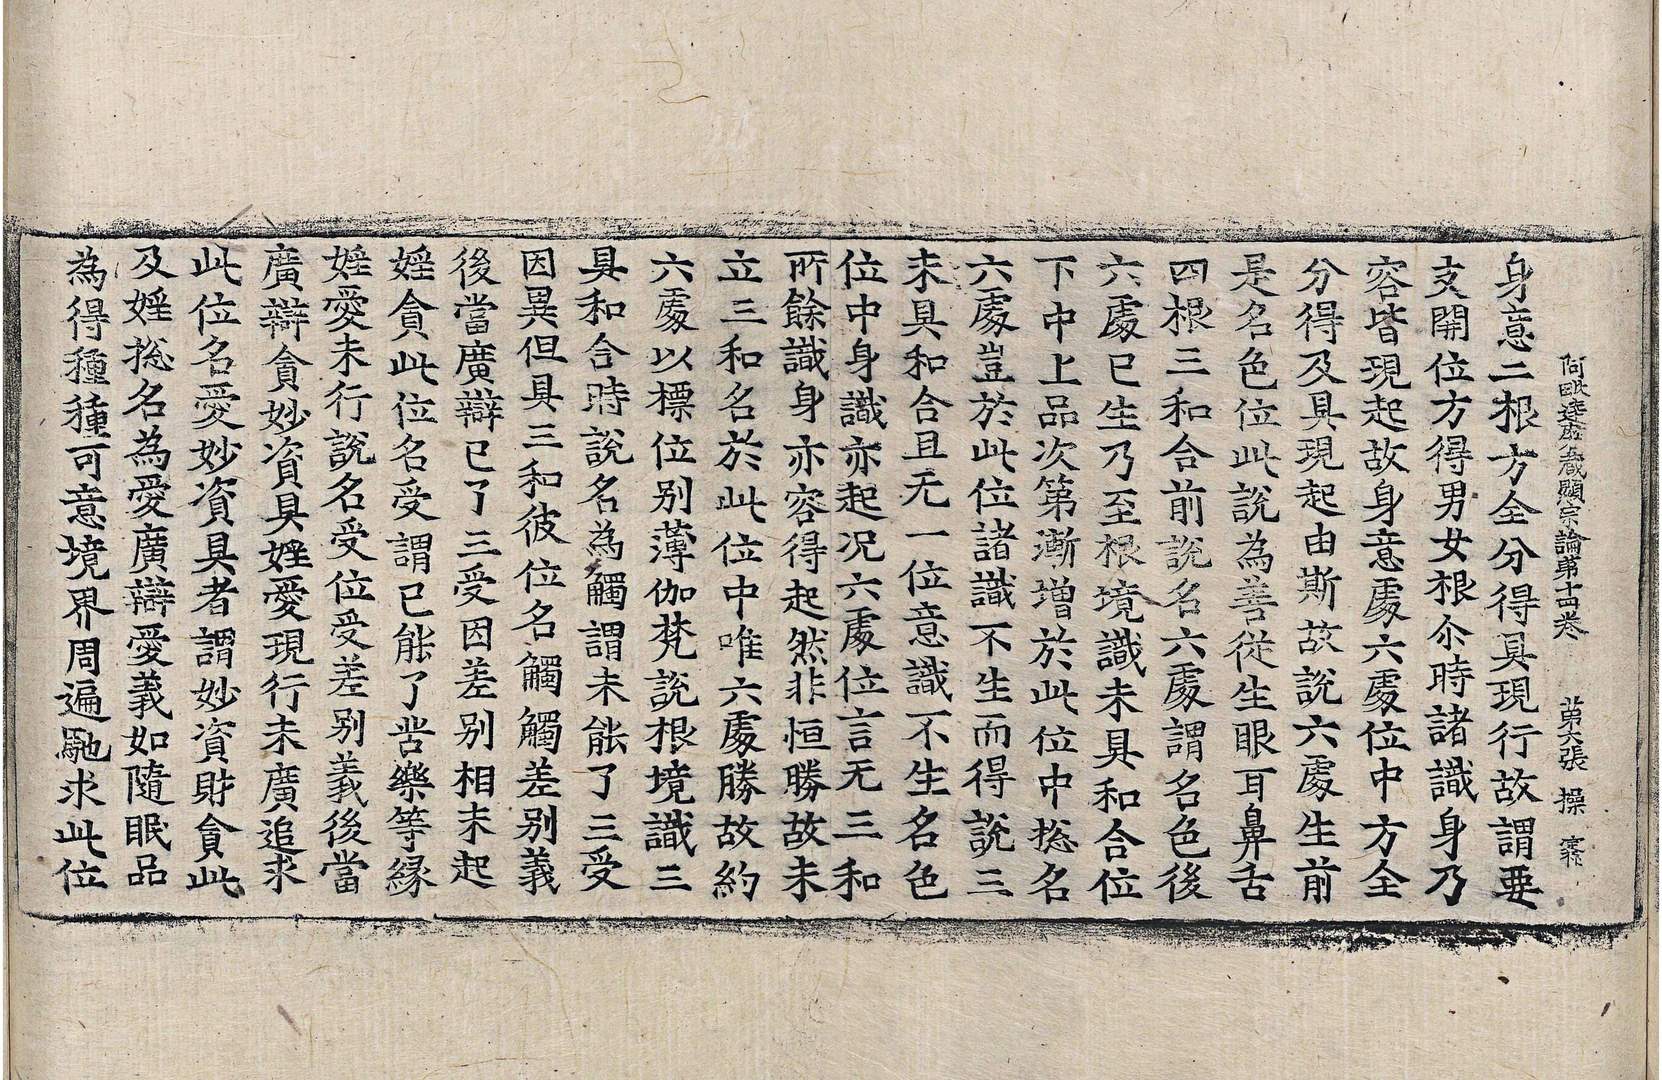 阿毗達磨藏顯宗論第十四卷　第六張　操
身意二根方全分得具現行故謂要
支開位方得男女根尒時諸識身乃
容皆現起故身意處六處位中方全
分得及具現起由斯故說六處生前
是名色位此說為善從生眼耳鼻舌
四根三和合前說名六處謂名色後
六處已生乃至根境識未具和合位
下中上品次第漸增於此位中捴名
六處豈於此位諸識不生而得說三
未具和合且无一位意識不生名色
位中身識亦起况六處位言无三和
所餘識身亦容得起然非恒勝故未
立三和名於此位中唯六處勝故約
六處以標位别薄伽梵說根境識三
具和合時說名為觸謂未能了三受
因異但具三和彼位名觸觸差别義
後當廣辯已了三受因差别相未起
婬貪此位名受謂已能了苦樂等緣
婬愛未行說名受位受差别義後當
廣辯貪妙資具婬愛現行未廣追求
此位名愛妙資具者謂妙資財貪此
及婬捴名為愛廣辯愛義如隨眠品
為得種種可意境界周遍馳求此位